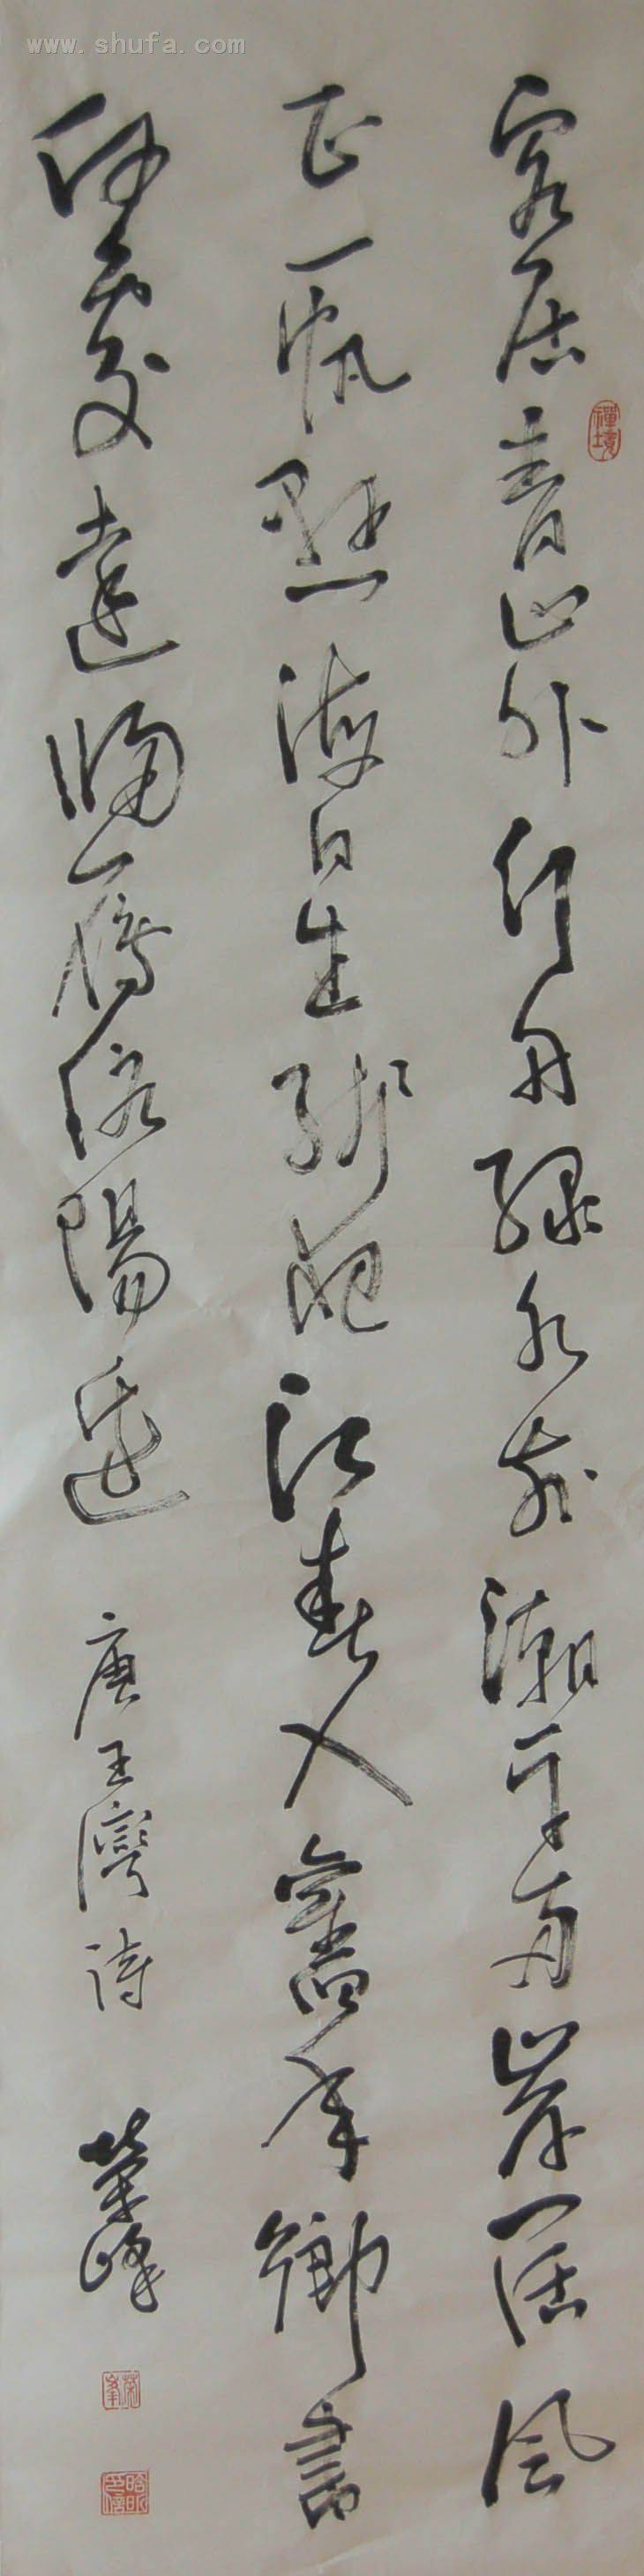 www.shufa.com
客居青山外行舟綠水前潮平兩岸闊風
正一帆懸海日生殘夜江春入舊年鄉書
何處達歸雁洛陽邊
唐王灣詩
榮峰
禪境